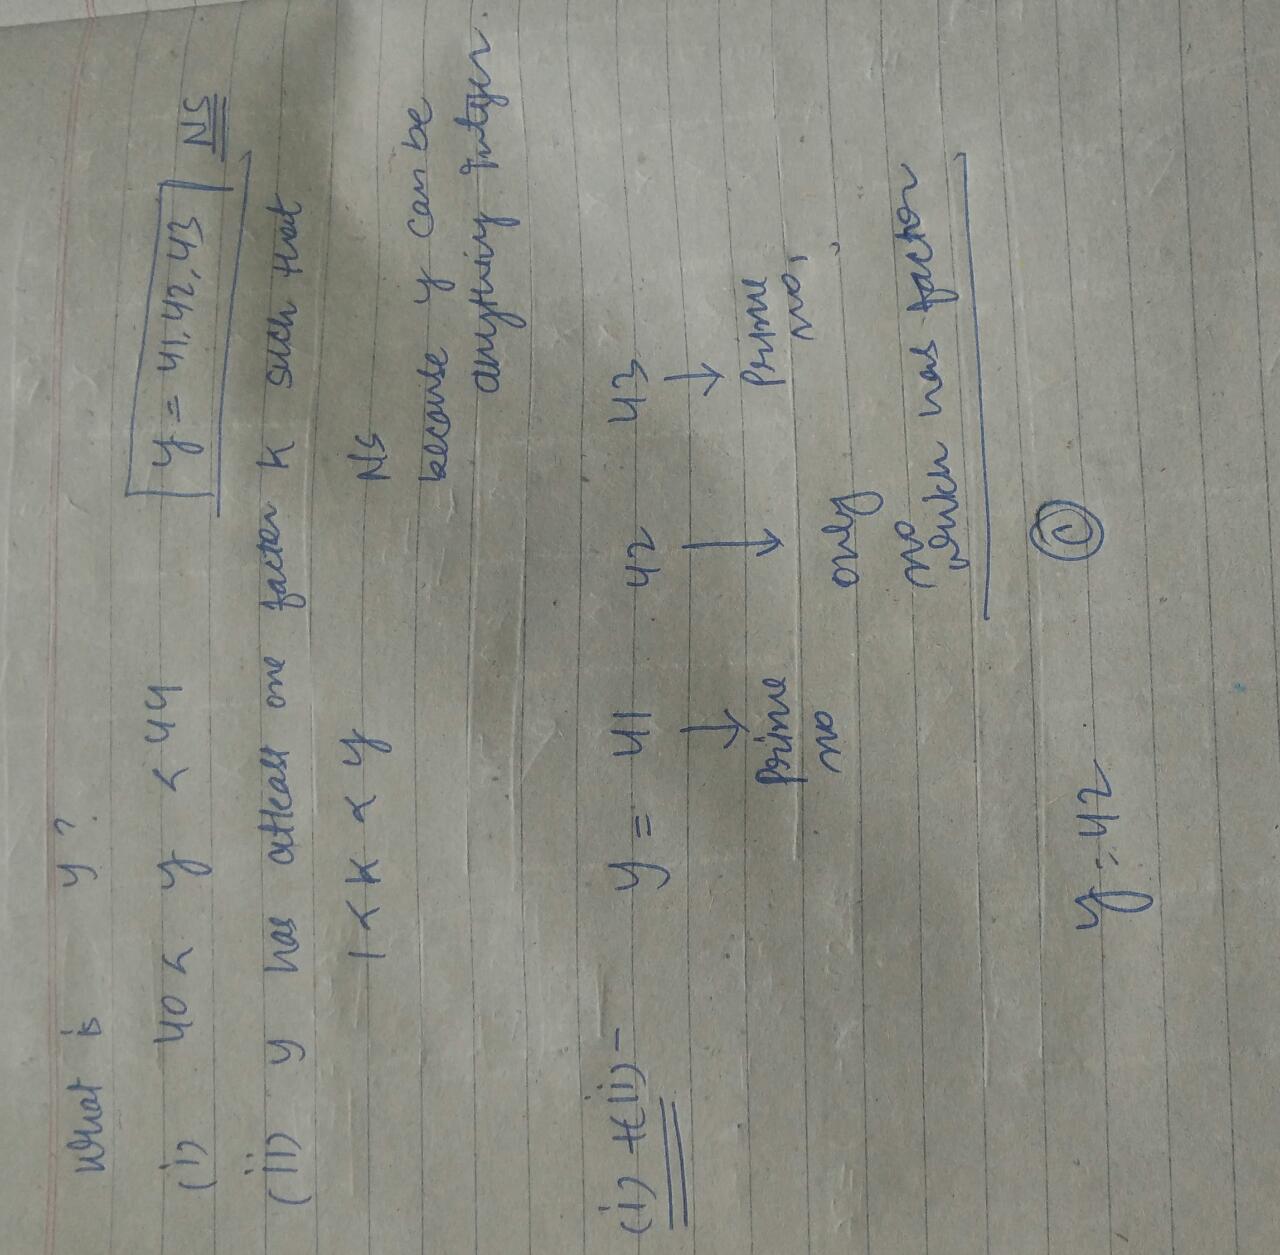 What is y?
(i) 40 < y < 44 y = 41, 42, 43 NS
(ii) y has atleast one factor K such that
1 < K < y NS
because y can be
anything integer
(i) + (ii) - y = 41 42 43
↓ ↓ ↓
Prime Prime
no no,
only
no
which has factor
y = 42 (C)